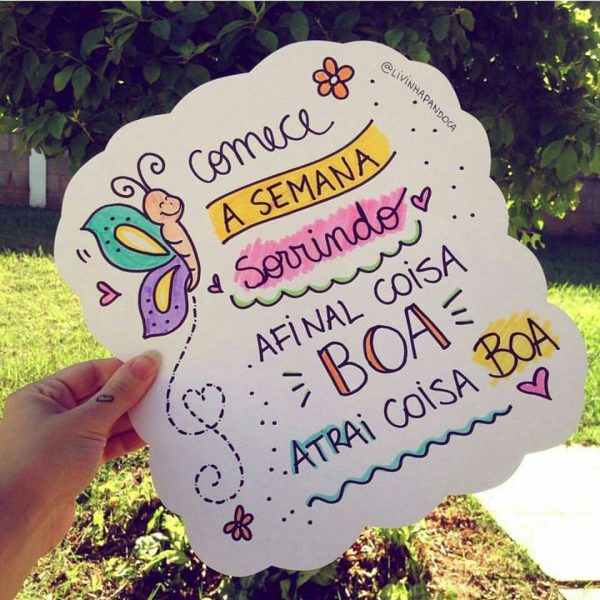 @LIVINHAPANDOCA
comece
A SEMANA
Sorrindo
AFINAL COISA
BOA
ATRAI COISA BOA